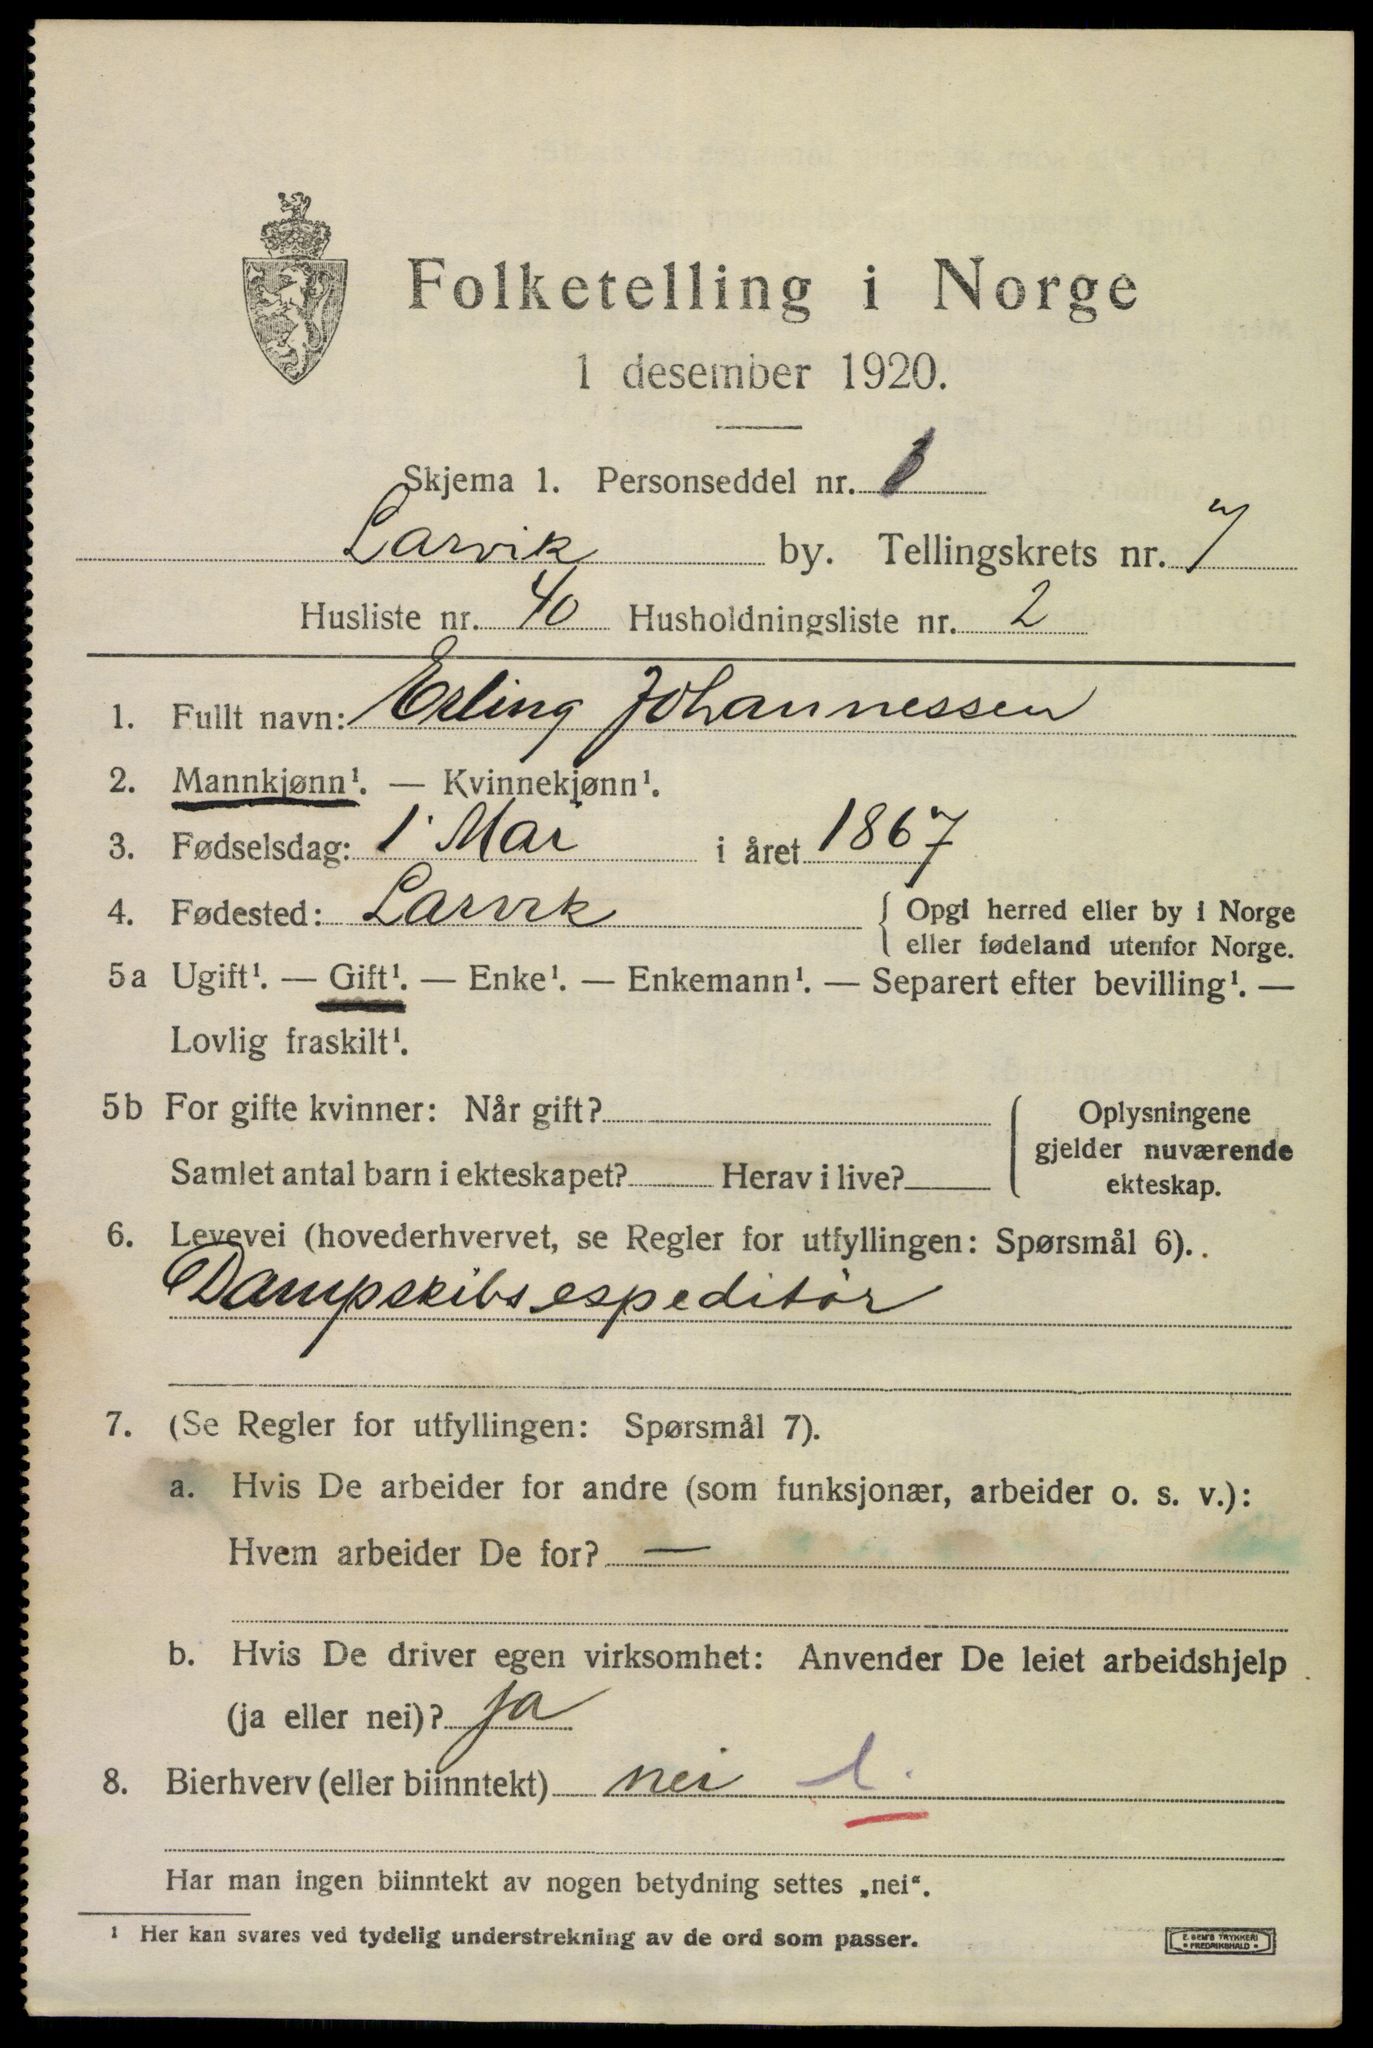 Folketelling i Norge
1 desember 1920.
Skjema 1. Personseddel nr. 1
Larvik by. Tellingskrets nr. 7
Husliste nr. 40 Husholdningsliste nr. 2
1. Fullt navn: Erling Johannessen
2. Mannkjønn¹. — Kvinnekjønn¹.
3. Fødselsdag: 1 Mai i året 1867
4. Fødested: Larvik { Opgi herred eller by i Norge
eller fødeland utenfor Norge.
5a Ugift¹. — Gift¹. — Enke¹. — Enkemann¹. — Separert efter bevilling¹. —
Lovlig fraskilt¹.
5b For gifte kvinner: Når gift? { Oplysningene
gjelder nuværende
Samlet antal barn i ekteskapet? Herav i live? ekteskap.
6. Levevei (hovederhvervet, se Regler for utfyllingen: Spørsmål 6).
Dampskibsespeditör
7. (Se Regler for utfyllingen: Spørsmål 7).
a. Hvis De arbeider for andre (som funksjonær, arbeider o. s. v.):
Hvem arbeider De for? —
b. Hvis De driver egen virksomhet: Anvender De leiet arbeidshjelp
(ja eller nei)? ja
8. Bierhverv (eller biinntekt) nei 1.
Har man ingen biinntekt av nogen betydning settes „nei“.
¹ Her kan svares ved tydelig understrekning av de ord som passer.
E. SEM'S TRYKKERI
• FREDRIKSHALD •